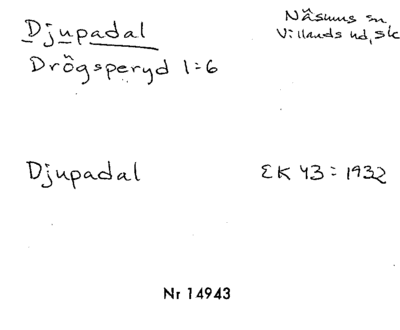 Djupadal
Näsums sn
Villands hd, Sk
Drögsperyd 1=6
Djupadal
EK 43 = 1932
Nr 14943